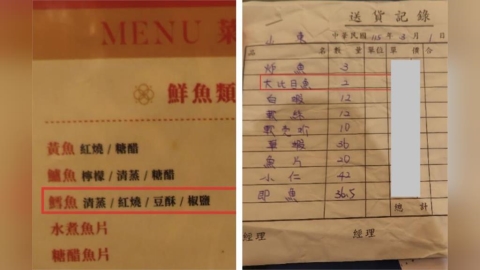 MENU 菜
鮮魚類
黃魚 紅燒 / 糖醋
鱸魚 檸檬 / 清蒸 / 糖醋
鱈魚 清蒸 / 紅燒 / 豆酥 / 椒鹽
水煮魚片
糖醋魚片
送貨記錄
山東 中華民國 115 年 3 月 1 日
品 名 數量 單位 單價 合
炸魚 3
大比目魚 2
白蝦 12
10
草蝦 36
魚片 20
小仁 42
魚 36.5
總計
經理 經理